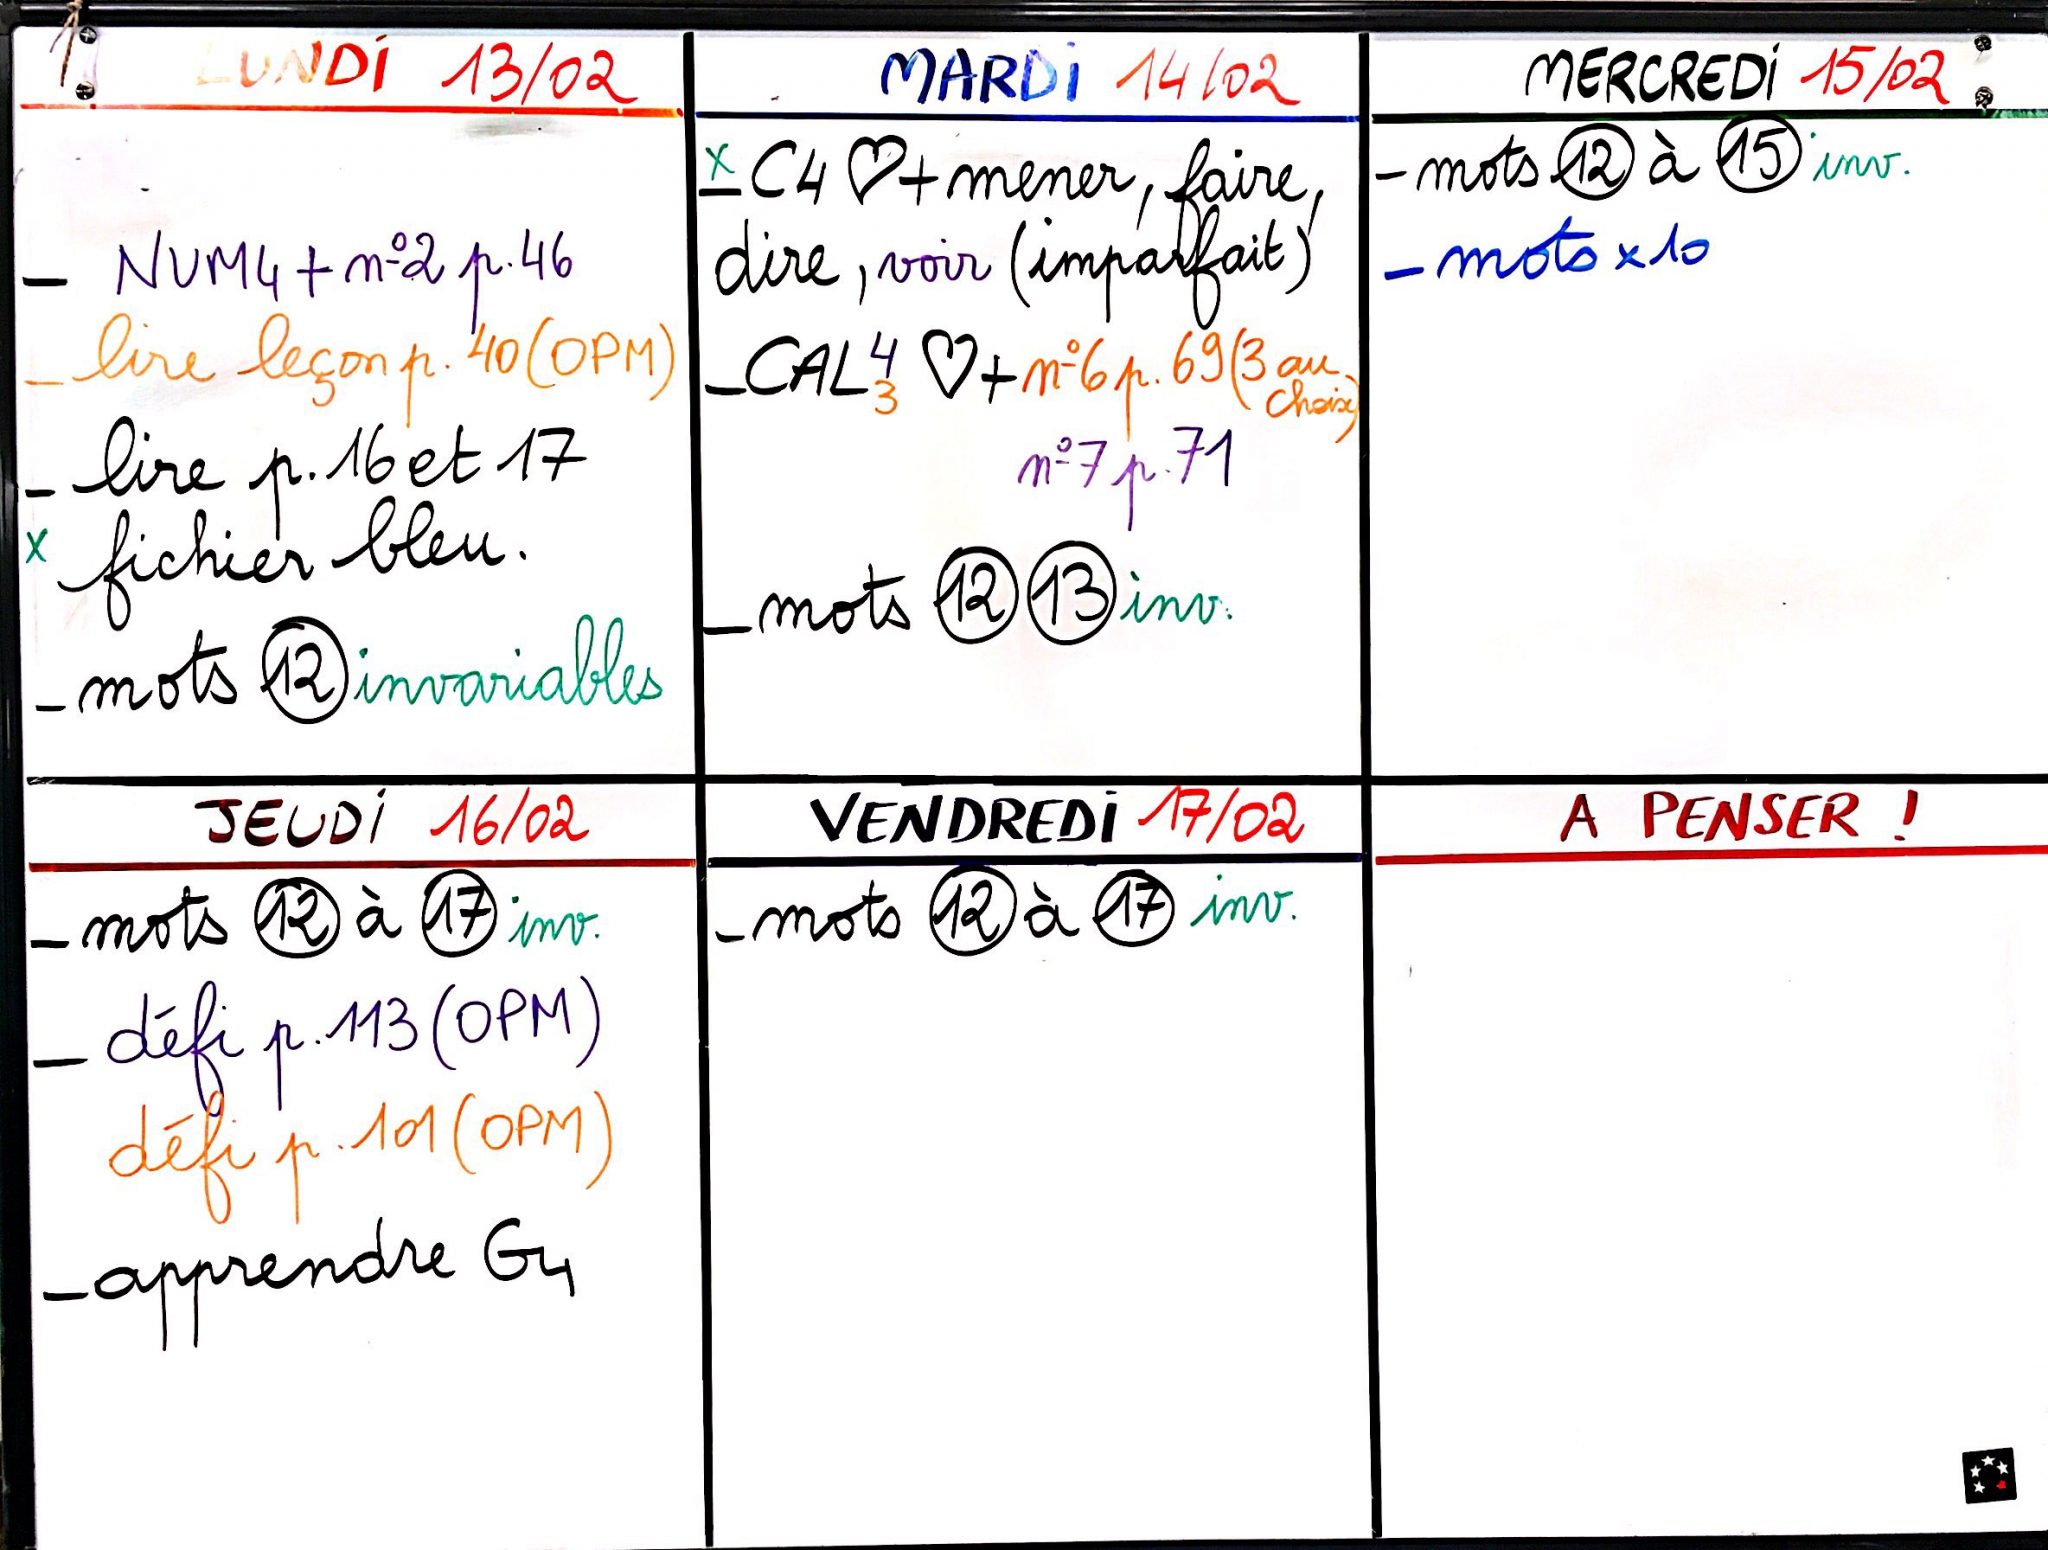 LUNDI 13/02
- NUM4 + n°2 p.46
- lire leçon p. 40 (OPM)
- lire p. 16 et 17
x fichier bleu.
- mots 12 invariables
MARDI 14/02
x - C4 ♡ + mener, faire,
dire, voir (imparfait)
- CAL 4 3 ♡ + n°6 p. 69 (3 au choix)
n°7 p. 71
- mots 12 13 inv.
MERCREDI 15/02
- mots 12 à 15 inv.
- mots x 10
JEUDI 16/02
- mots 12 à 17 inv.
- défi p. 113 (OPM)
défi p. 101 (OPM)
- apprendre G4
VENDREDI 17/02
- mots 12 à 17 inv.
A PENSER !